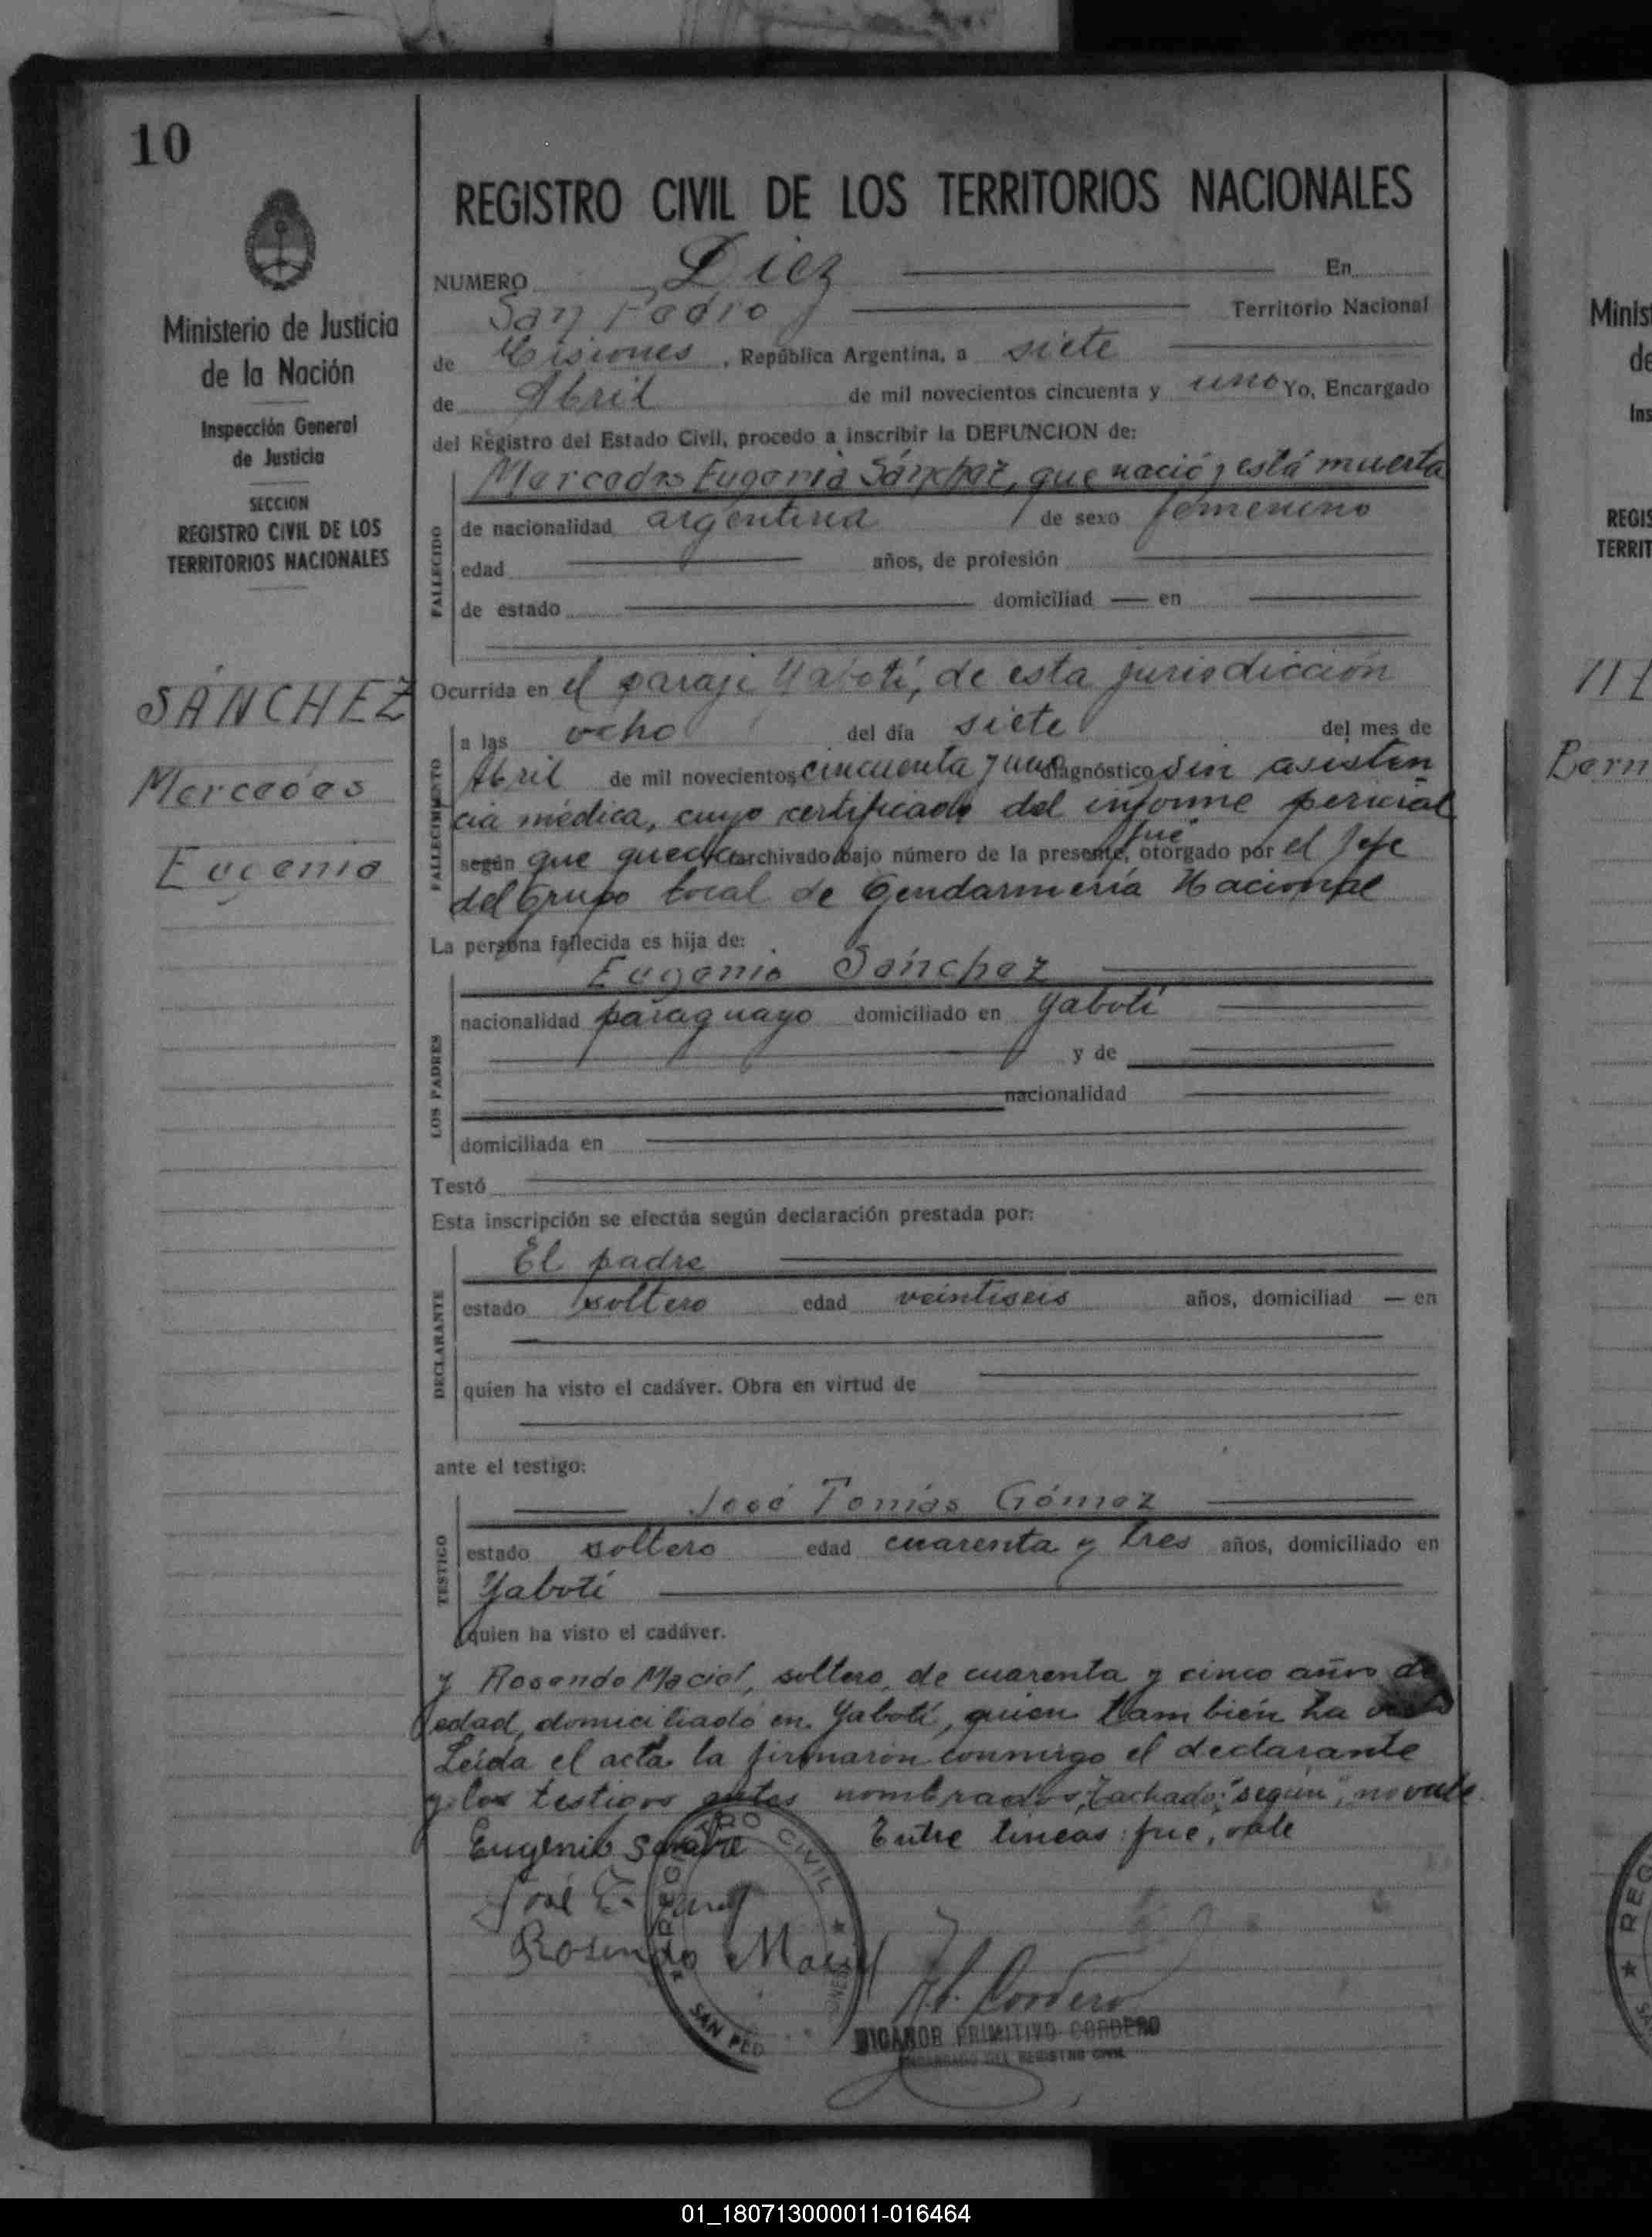 10
REGISTRO CIVIL DE LOS TERRITORIOS NACIONALES
Ministerio de Justicia
de la Nación
Inspección General
de Justicia
SECCION
REGISTRO CIVIL DE LOS
TERRITORIOS NACIONALES
SÁNCHEZ
Mercedes
Eugenia
NUMERO Diez En
San Pedro Territorio Nacional
de Misiones, República Argentina, a siete
de Abril de mil novecientos cincuenta y uno Yo, Encargado
del Registro del Estado Civil, procedo a inscribir la DEFUNCION de:
Mercedes Eugenia Sánchez, que nació y está muerta
FALLECIDO
de nacionalidad argentina de sexo femenino
edad años, de profesión
de estado domiciliad — en
Ocurrida en el paraje Yabotí, de esta jurisdicción
FALLECIMIENTO
a las ocho del día siete del mes de
Abril de mil novecientos cincuenta y uno diagnóstico sin asisten
cia médica, cuyo certificado del informe pericial
fué
según que queda archivado bajo número de la presente, otorgado por el Jefe
del Grupo local de Gendarmería Nacional
La persona fallecida es hija de:
LOS PADRES
Eugenio Sánchez
nacionalidad paraguayo domiciliado en Yabotí
y de
nacionalidad
domiciliada en
Testó
Esta inscripción se efectúa según declaración prestada por:
DECLARANTE
El padre
estado soltero edad veintiseis años, domiciliad — en
quien ha visto el cadáver. Obra en virtud de
ante el testigo:
TESTIGO
José Tomás Gómez
estado soltero edad cuarenta y tres años, domiciliado en
Yabotí
quien ha visto el cadáver.
y Rosendo Maciel, soltero, de cuarenta y cinco años de
edad, domiciliado en Yabotí, quien también ha
Leída el acta la firmaron conmigo el declarante
y los testigos antes nombrados, Tachado: "según", no vale.
Entre lineas: fue, vale
Eugenio
José
Rosendo Maciel
REGISTRO CIVIL
SAN PED
Cordero
NICANOR PRIMITIVO CORDERO
ENCARGADO DEL REGISTRO CIVIL
Minis
de
Ins
REGIS
TERRIT
Bern
REG
01_180713000011-016464